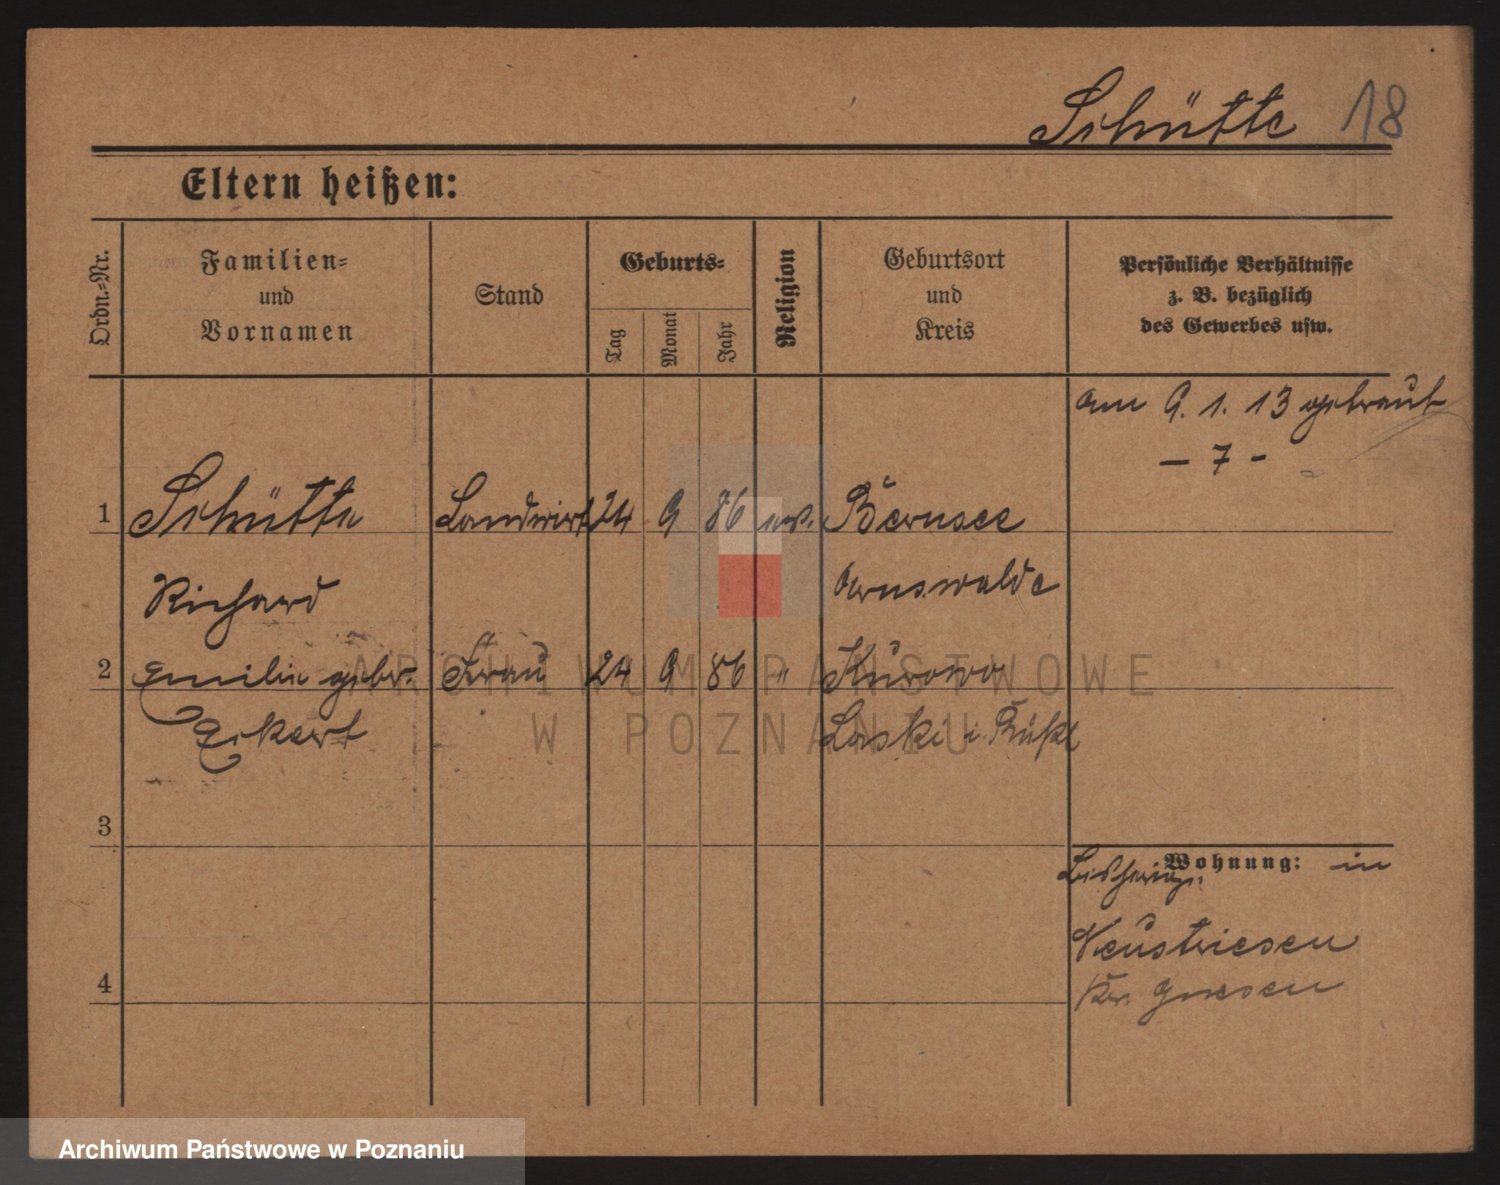 Schütte 18
Eltern heißen:
Ordn.-Nr.
Familien-
und
Vornamen
Stand
Geburts-
Tag
Monat
Jahr
Religion
Geburtsort
und
Kreis
Persönliche Verhältnisse
z. B. bezüglich
des Gewerbes usw.
am 9. 1. 13 getraut
- 7 -
1 Schütte Landwirt 24 9 86 ev. Bernsee
Richard Arnswalde
2 Emilie geb. Frau 24 9 86 " Kurowo
Eckert Laski i.
3
Wohnung: in
bisherige
Neustriesen
4 Kr. Gnesen
ARCHIWUM PAŃSTWOWE
W POZNANIU
Archiwum Państwowe w Poznaniu